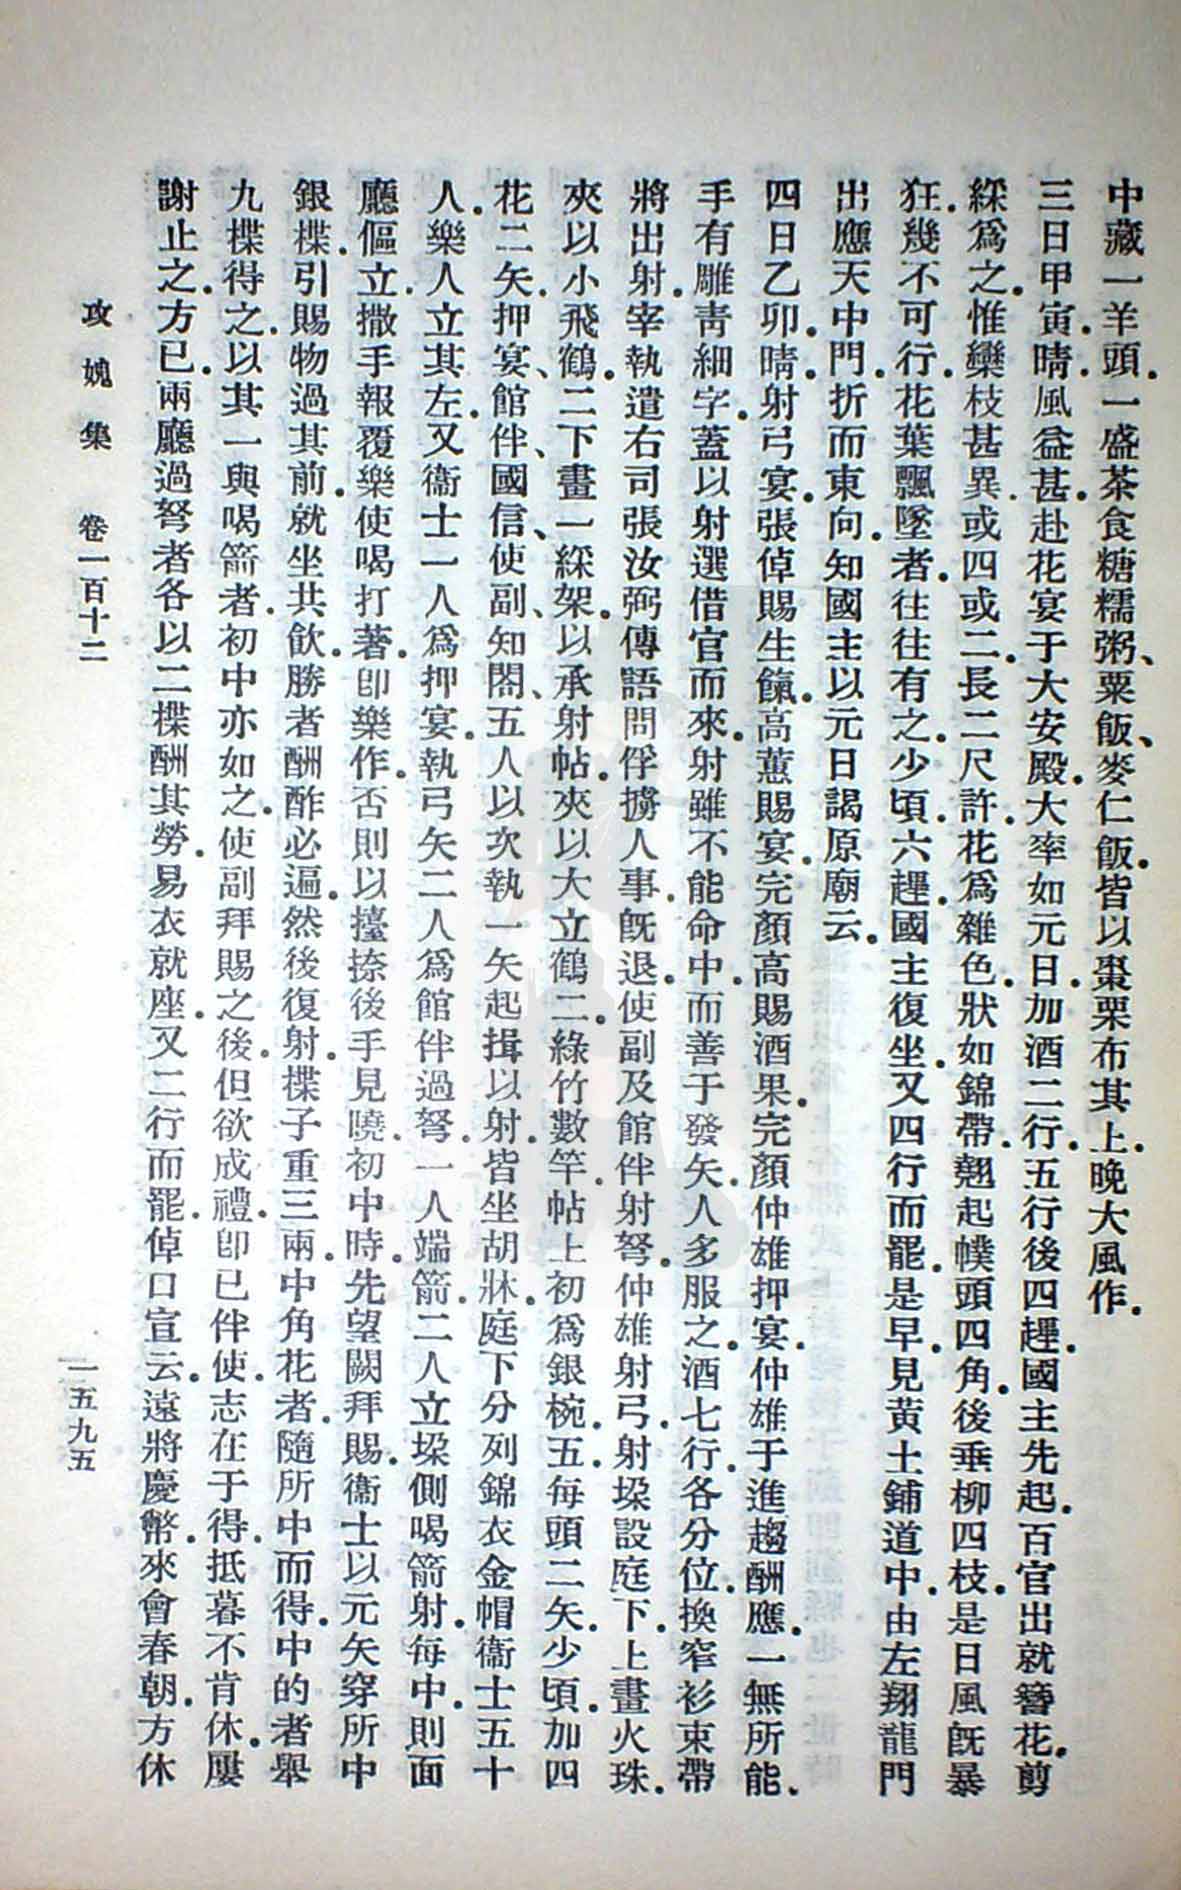 中藏一羊頭.一盛茶食糖糯粥、粟飯、麥仁飯.皆以棗栗布其上.晚大風作.
三日甲寅.晴.風益甚.赴花宴于大安殿.大率如元日.加酒二行.五行後四趧.國主先起.百官出就簪花.剪
綵為之.惟欒枝甚異.或四或二.長二尺許.花為雜色.狀如錦帶.翹起幞頭四角.後垂柳四枝.是日風旣暴
狂.幾不可行.花葉飄墜者.往往有之.少頃.六趧.國主復坐.又四行而罷.是早.見黃土鋪道中.由左翔龍門
出應天中門.折而東向.知國主以元日謁原廟云.
四日乙卯.晴.射弓宴.張倬賜生餼.高蕙賜宴.完顏高賜酒果.完顏仲雄押宴.仲雄于進趨酬應.一無所能.
手有雕靑細字.蓋以射選借官而來.射雖不能命中.而善于發矢.人多服之.酒七行.各分位.換窄衫束帶
將出射.宰執遣右司張汝弼傳語問俘擄人事.旣退.使副及館伴射弩.仲雄射弓.射垜設庭下.上畫火珠.
夾以小飛鶴.二下畫一綵架.以承射帖.夾以大立鶴二.綠竹數竿.帖上初為銀椀.五每頭二矢.少頃.加四
花二矢.押宴、館伴、國信、使副、知閤、五人以次執一矢起揖以射.皆坐胡牀.庭下分列錦衣金帽衞士五十
人.樂人立其左.又衞士一人為押宴.執弓矢二人為館伴過弩.一人端箭.二人立垜側喝箭射.每中.則面
廳傴立.撒手報覆樂使喝打著.卽樂作.否則以擡捺後手見曉.初中時.先望闕拜賜.衞士以元矢穿所中
銀楪.引賜物過其前.就坐共飲.勝者酬酢必遍.然後復射.楪子重三兩.中角花者.隨所中而得.中的者舉
九楪得之.以其一與喝箭者.初中亦如之.使副拜賜之後.但欲成禮.卽已伴使.志在于得.抵暮不肯休.屢
謝止之.方已.兩廳過弩者各以二楪酬其勞.易衣就座.又二行而罷.倬口宣云.遠將慶幣.來會春朝.方休
攻媿集 卷一百十二
一五九五